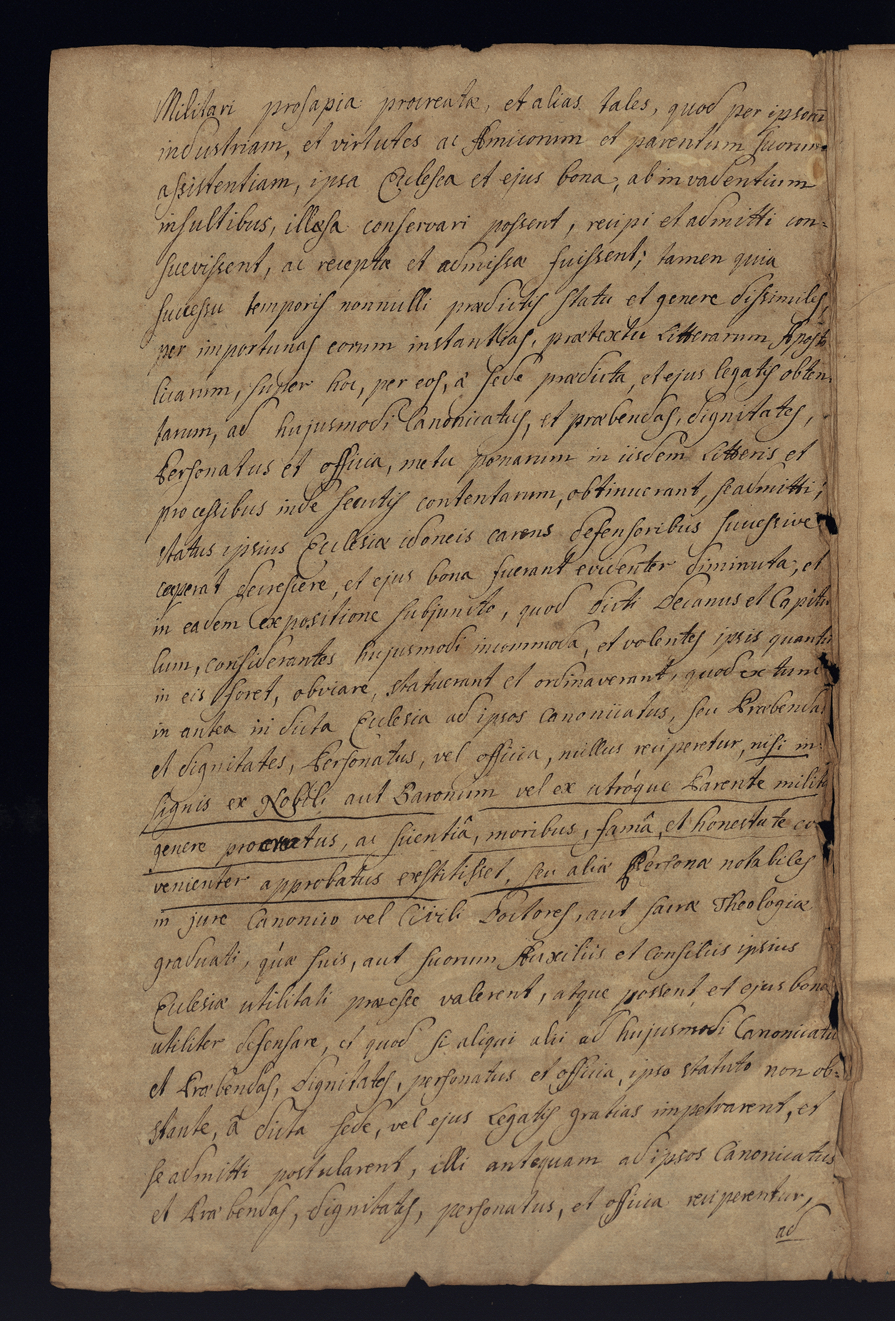 Militari prosapia procreatæ, et alias tales, quod per ipsorū
industriam, et virtutes ac Amicorum et parentum suorum
assistentiam, ipsa Ecclesia et ejus bona, ab invadentium
insultibus, illæsa conservari possent, recipi et admitti con-
suevissent, ac receptæ et admissæ fuissent; tamen quia
successu temporis nonnulli prædictis statu et genere dissimiles
per importunas eorum instantias, prætextu Litterarum Aposto
licarum, super hoc, per eos, à sede prædicta, et ejus legatis obten
tarum, ad hujusmodi Canonicatus, et præbendas, dignitates,
Personatus et officia, metu pœnarum in iisdem Litteris et
processibus inde secutis contentarum, obtinuerant, se admitti;
status ipsius Ecclesiæ idoneis carens defensoribus successive
cœperat decrescere, et ejus bona fuerant evidenter diminuta, et
in eadem expositione subjuncto, quod dicti Decanus et Capitu
lum, considerantes hujusmodi incommoda, et volentes ipsis quantū
in eis foret, obviare, statuerant et ordinaverant, quod ex tunc
in antea in dicta Ecclesia ad ipsos canonicatus, seu Præbendas
et dignitates, Personatus, vel officia, nullus reciperetur, nisi in
signis ex Nobili aut Baronum vel ex utróque Parente milita
genere procreatus, ac scientiâ, moribus, famâ, et honestate co
venienter approbatus exstitisset, seu aliæ Personæ notabiles
in jure Canonico vel Civili Doctores, aut sacræ Theologiæ
graduati, quæ suis, aut suorum Auxiliis et Consiliis ipsius
Ecclesiæ utilitati præesse valerent, atque possent et ejus bona
utiliter defensare, et quod si aliqui alii ad hujusmodi Canonicatus
et Præbendas, dignitates, personatus et officia, ipso statuto non ob-
stante, à dicta sede, vel ejus Legatis gratias impetrarent, et
se admitti postularent, illi antequam ad ipsos Canonicatus
et Præbendas, dignitates, personatus, et officia reciperentur,
ad